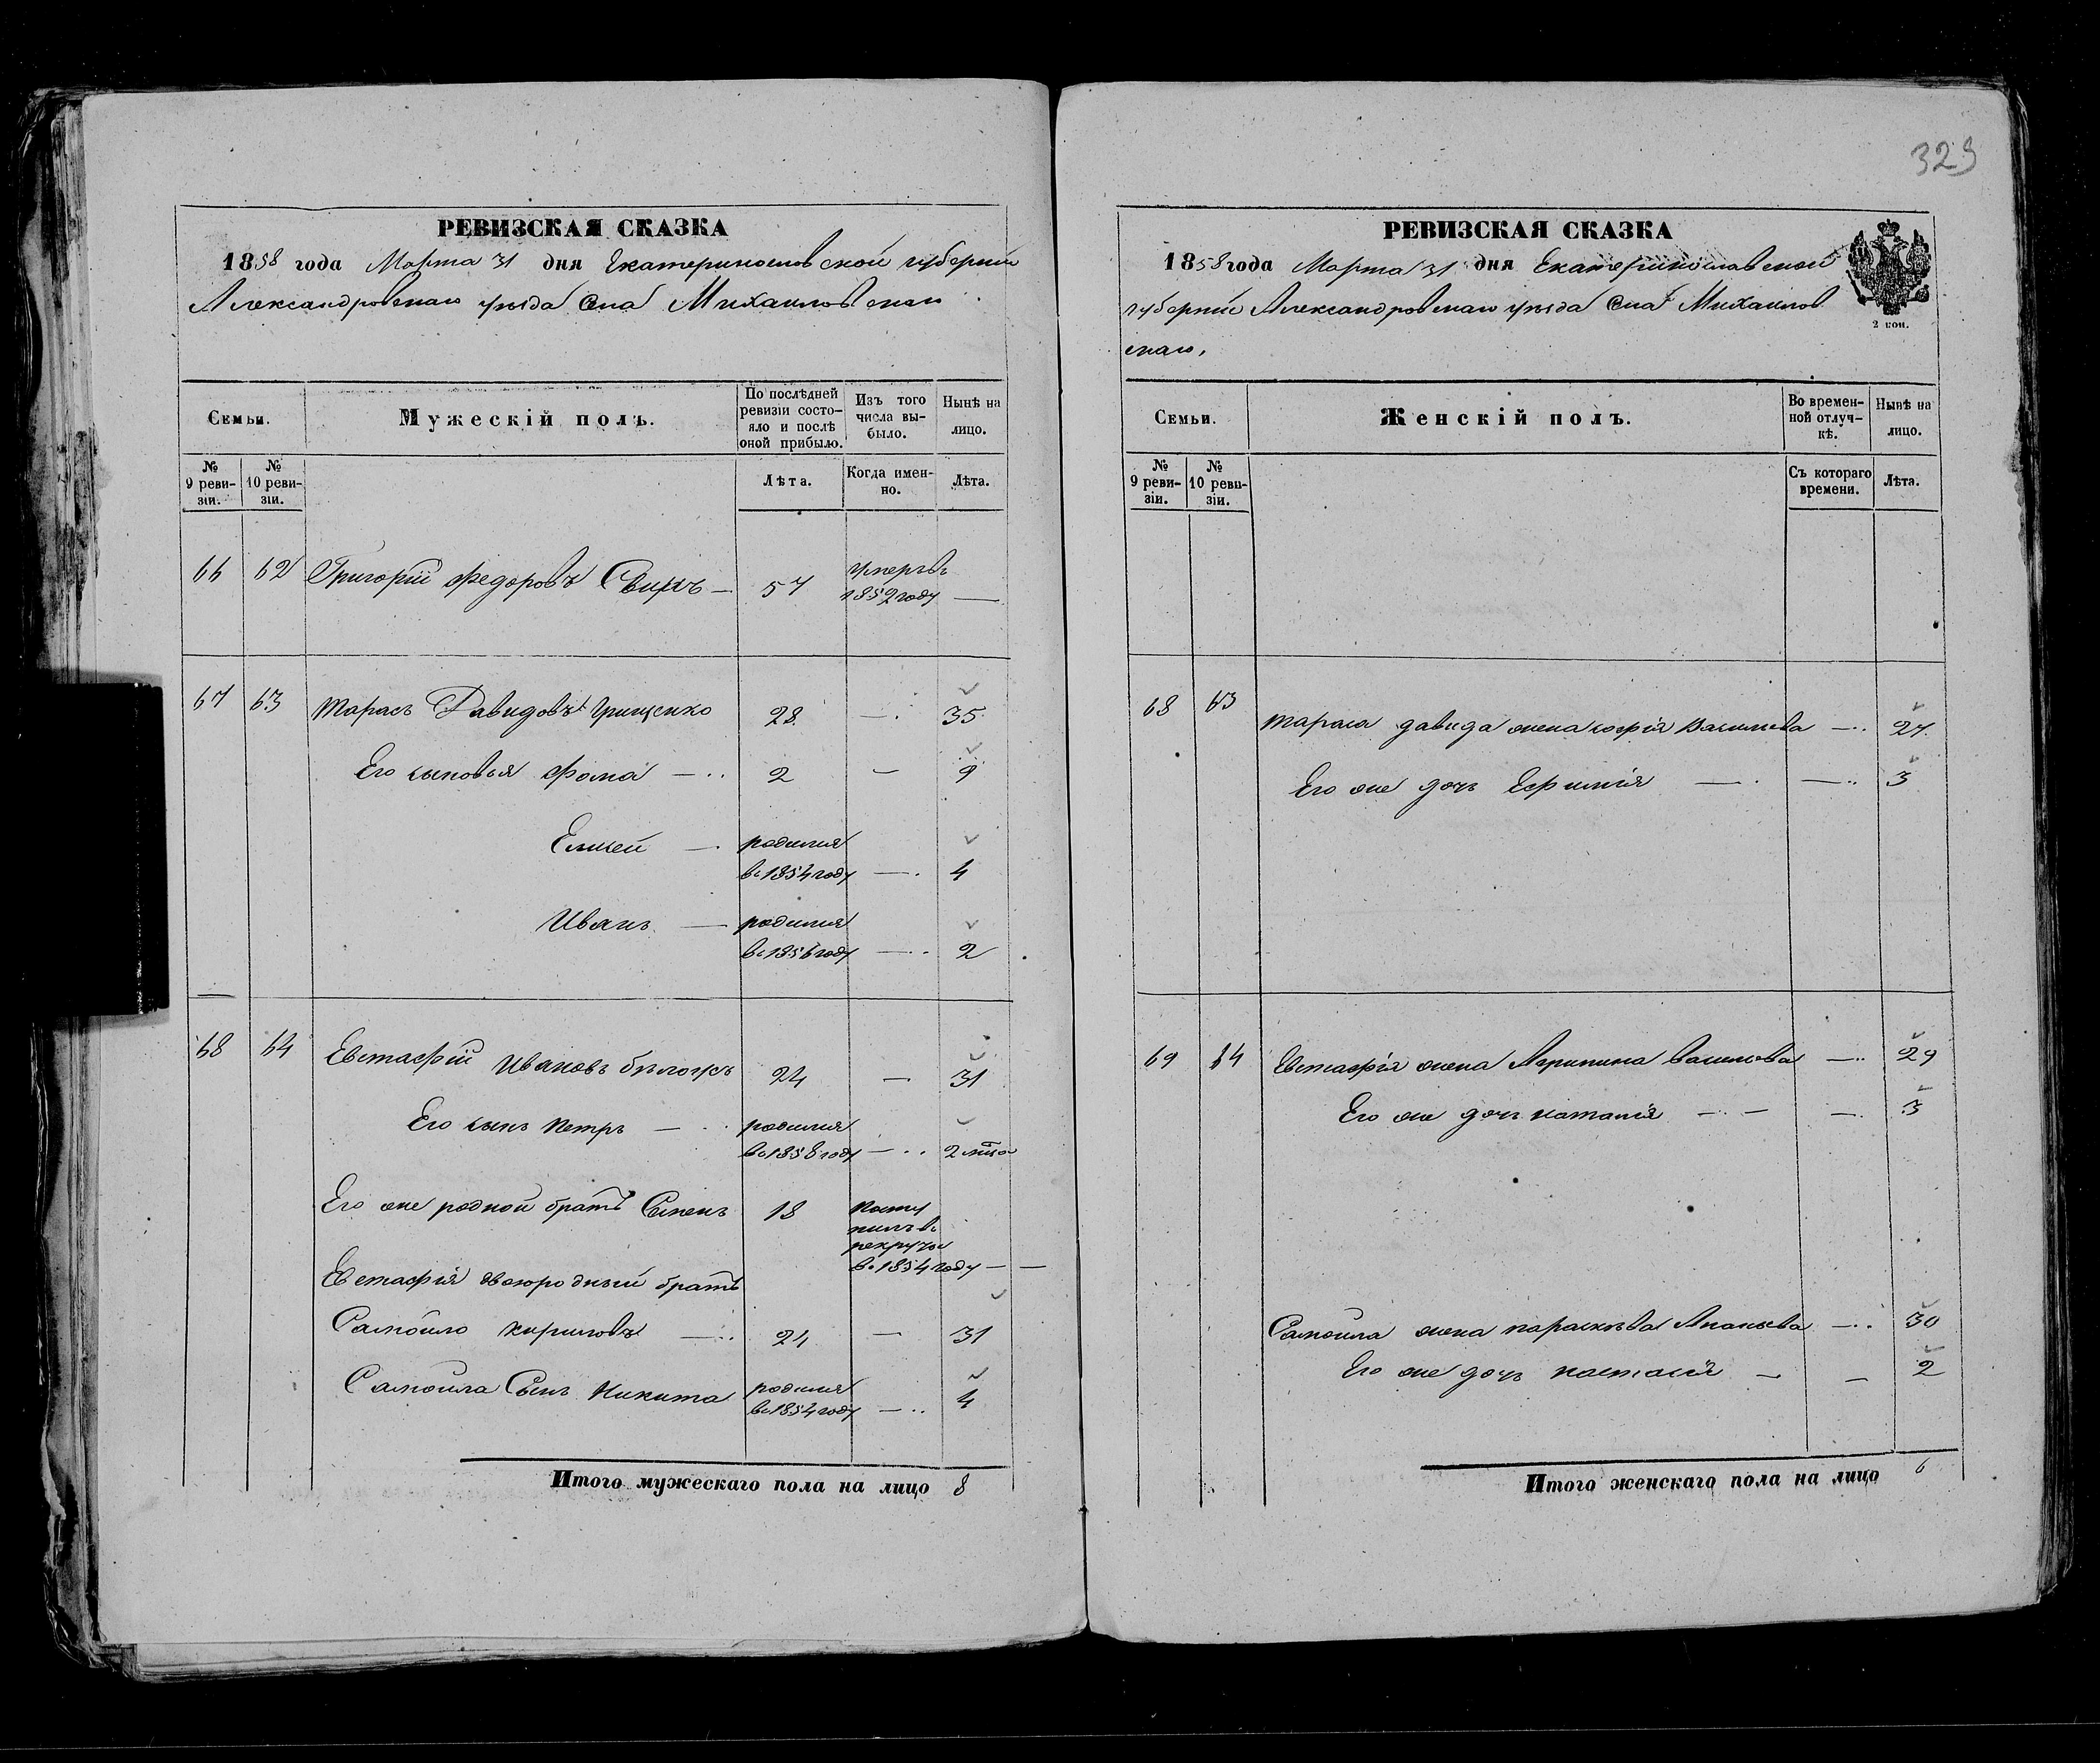 329
РЕВИЗСКАЯ СКАЗКА
1858 года Марта 31 дня Екатеринославской губерніи
Александровскаго уезда Села Михаиловскаго
Семьи.
Мужескій полъ.
По послѣдней ревизіи состо-
яло и послѣ оной прибыло.
Изъ того числа вы-
было.
Нынѣ на лицо.
№ 9 реви-
зіи.
№ 10 реви-
зіи.
Лѣта.
Когда имен-
но.
Лѣта.
66 62 Григорій Федоровъ — 57 умеръ въ
1852 году —
67 63 Тарасъ Давидовъ Грищенко 28 — 35
Его сыновья Фома — 2 — 9
Елисей — родился
въ 1854 году — 4
Иванъ — родился
въ 1856 году — 2
68 64 Евстафій Ивановъ 24 — 31
Его сынъ Петръ — родился
въ 1858 году —
Его же родной братъ Семенъ 18 Посту
пилъ в
рекруты
въ 1854 году — —
Евстафія двоюродный братъ
Самойло Кириловъ — 24 — 31
Самоила Сынъ Никита родился
въ 1854 году — 4
Итого мужескаго пола на лицо 8
РЕВИЗСКАЯ СКАЗКА
1858 года Марта 31 дня Екатеринославской
губерніи Александровскаго уезда Села Михаилов
скаго,
2 коп.
Семьи.
Женскій полъ.
Во времен-
ной отлуч-
кѣ.
Нынѣ на лицо.
№ 9 реви-
зіи.
№ 10 реви-
зіи.
Съ котораго времени.
Лѣта.
68 63 Тараса Давида жена Софія Васильева — 27
Его же дочь Ефимія — — 3
69 64 Евстафія жена Агрипина Васильева — 29
Его же дочь Наталія — — — 3
Самоила жена Параскѣва Ананьева — 30
Его же дочь Настасія — — 2
Итого женскаго пола на лицо 6